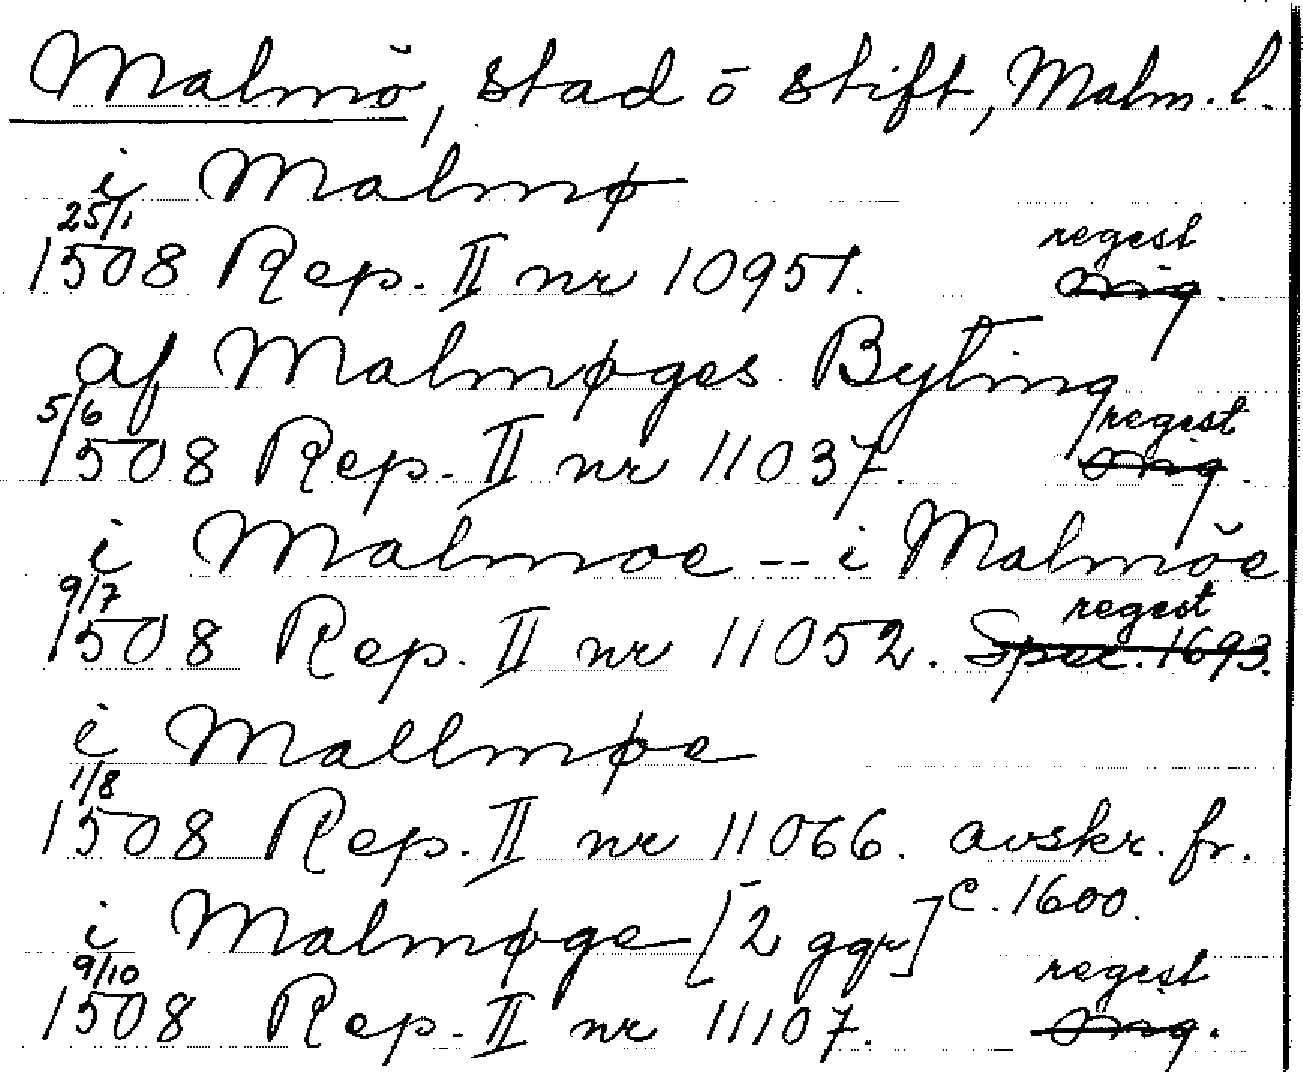 Malmö, stad o stift, Malm. l.
i Malmø
25/1
1508 Rep. II nr 10951. regest
orig.
af Malmøges Byting
5/6
1508 Rep. II nr 11037. regest
orig.
i Malmoe -- i Malmöe
9/7
1508 Rep. II nr 11052. regest
Spec. 1693.
i Mallmøe
1/8
1508 Rep. II nr 11066. avskr. fr.
c. 1600.
i Malmøge [2 ggr]
9/10
1508 Rep. II nr 11107. regest
orig.